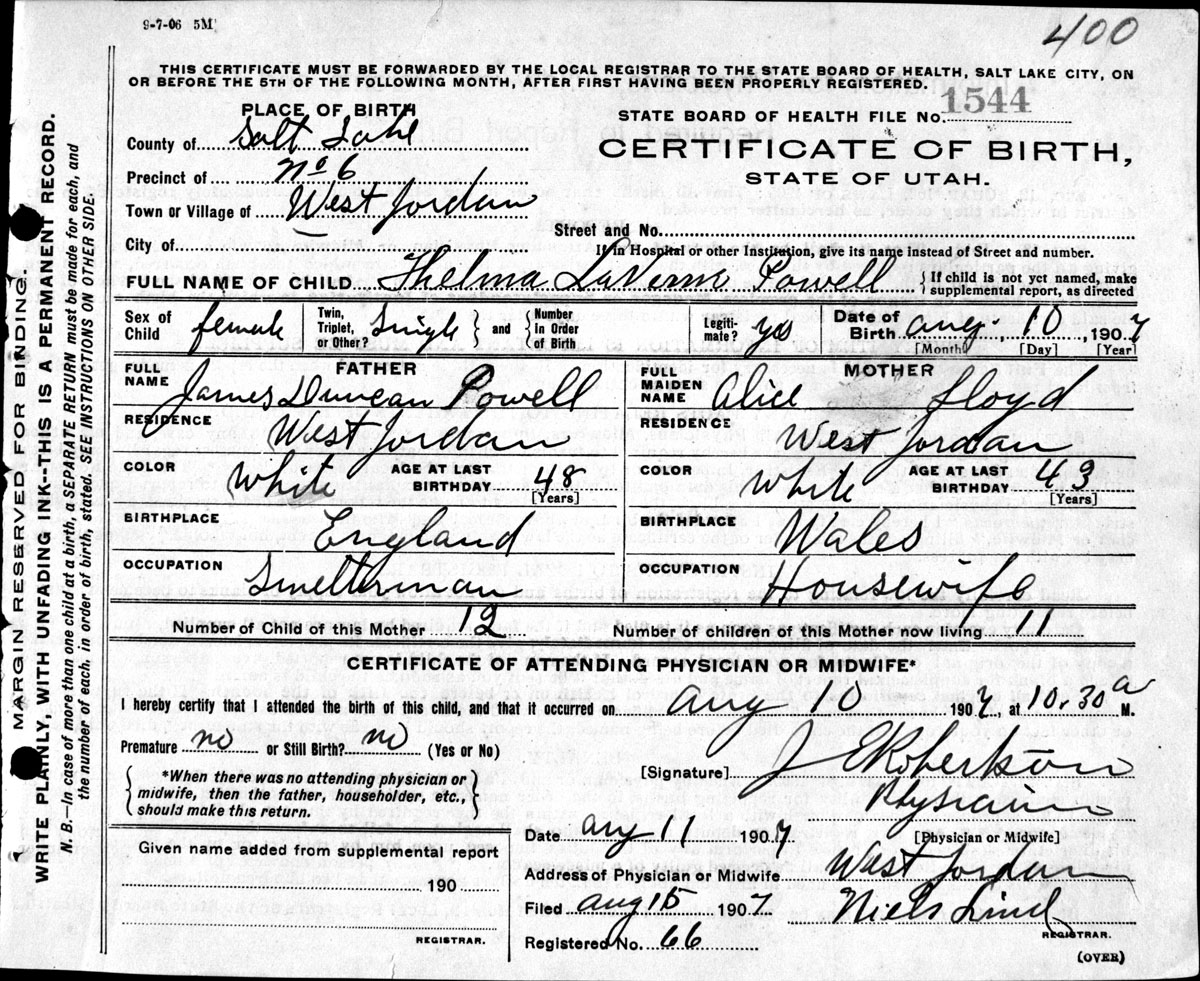 9-7-06 5M
400
THIS CERTIFICATE MUST BE FORWARDED BY THE LOCAL REGISTRAR TO THE STATE BOARD OF HEALTH, SALT LAKE CITY, ON
OR BEFORE THE 5TH OF THE FOLLOWING MONTH, AFTER FIRST HAVING BEEN PROPERLY REGISTERED.
PLACE OF BIRTH
STATE BOARD OF HEALTH FILE No. 1544
County of Salt Lake
CERTIFICATE OF BIRTH,
Precinct of No 6
STATE OF UTAH.
Town or Village of West Jordan
Street and No.
City of
If in Hospital or other Institution, give its name instead of Street and number.
FULL NAME OF CHILD Thelma LaVerne Powell { If child is not yet named, make supplemental report, as directed
Sex of Child female Twin, Triplet, or Other? Single } and { Number in Order of Birth Legiti-mate? yes Date of Birth Aug. 10, 1907
[Month] [Day] [Year]
FATHER
MOTHER
FULL NAME James Duncan Powell
FULL MAIDEN NAME Alice Lloyd
RESIDENCE West Jordan
RESIDENCE West Jordan
COLOR White AGE AT LAST BIRTHDAY 48 [Years]
COLOR White AGE AT LAST BIRTHDAY 43 [Years]
BIRTHPLACE England
BIRTHPLACE Wales
OCCUPATION Smelterman
OCCUPATION Housewife
Number of Child of this Mother 12 Number of children of this Mother now living 11
CERTIFICATE OF ATTENDING PHYSICIAN OR MIDWIFE*
I hereby certify that I attended the birth of this child, and that it occurred on Aug 10 1907, at 10.30 a M.
Premature no or Still Birth? no (Yes or No)
[Signature] J E Robertson
{ *When there was no attending physician or
midwife, then the father, householder, etc.,
should make this return. }
Physician
Date Aug 11 1907 [Physician or Midwife]
Given name added from supplemental report
190
REGISTRAR.
Address of Physician or Midwife West Jordan
Filed Aug 15 1907 Niels Lind
REGISTRAR.
Registered No. 66
(OVER)
MARGIN RESERVED FOR BINDING.
WRITE PLAINLY, WITH UNFADING INK--THIS IS A PERMANENT RECORD.
N. B.—In case of more than one child at a birth, a SEPARATE RETURN must be made for each, and
the number of each, in order of birth, stated. SEE INSTRUCTIONS ON OTHER SIDE.